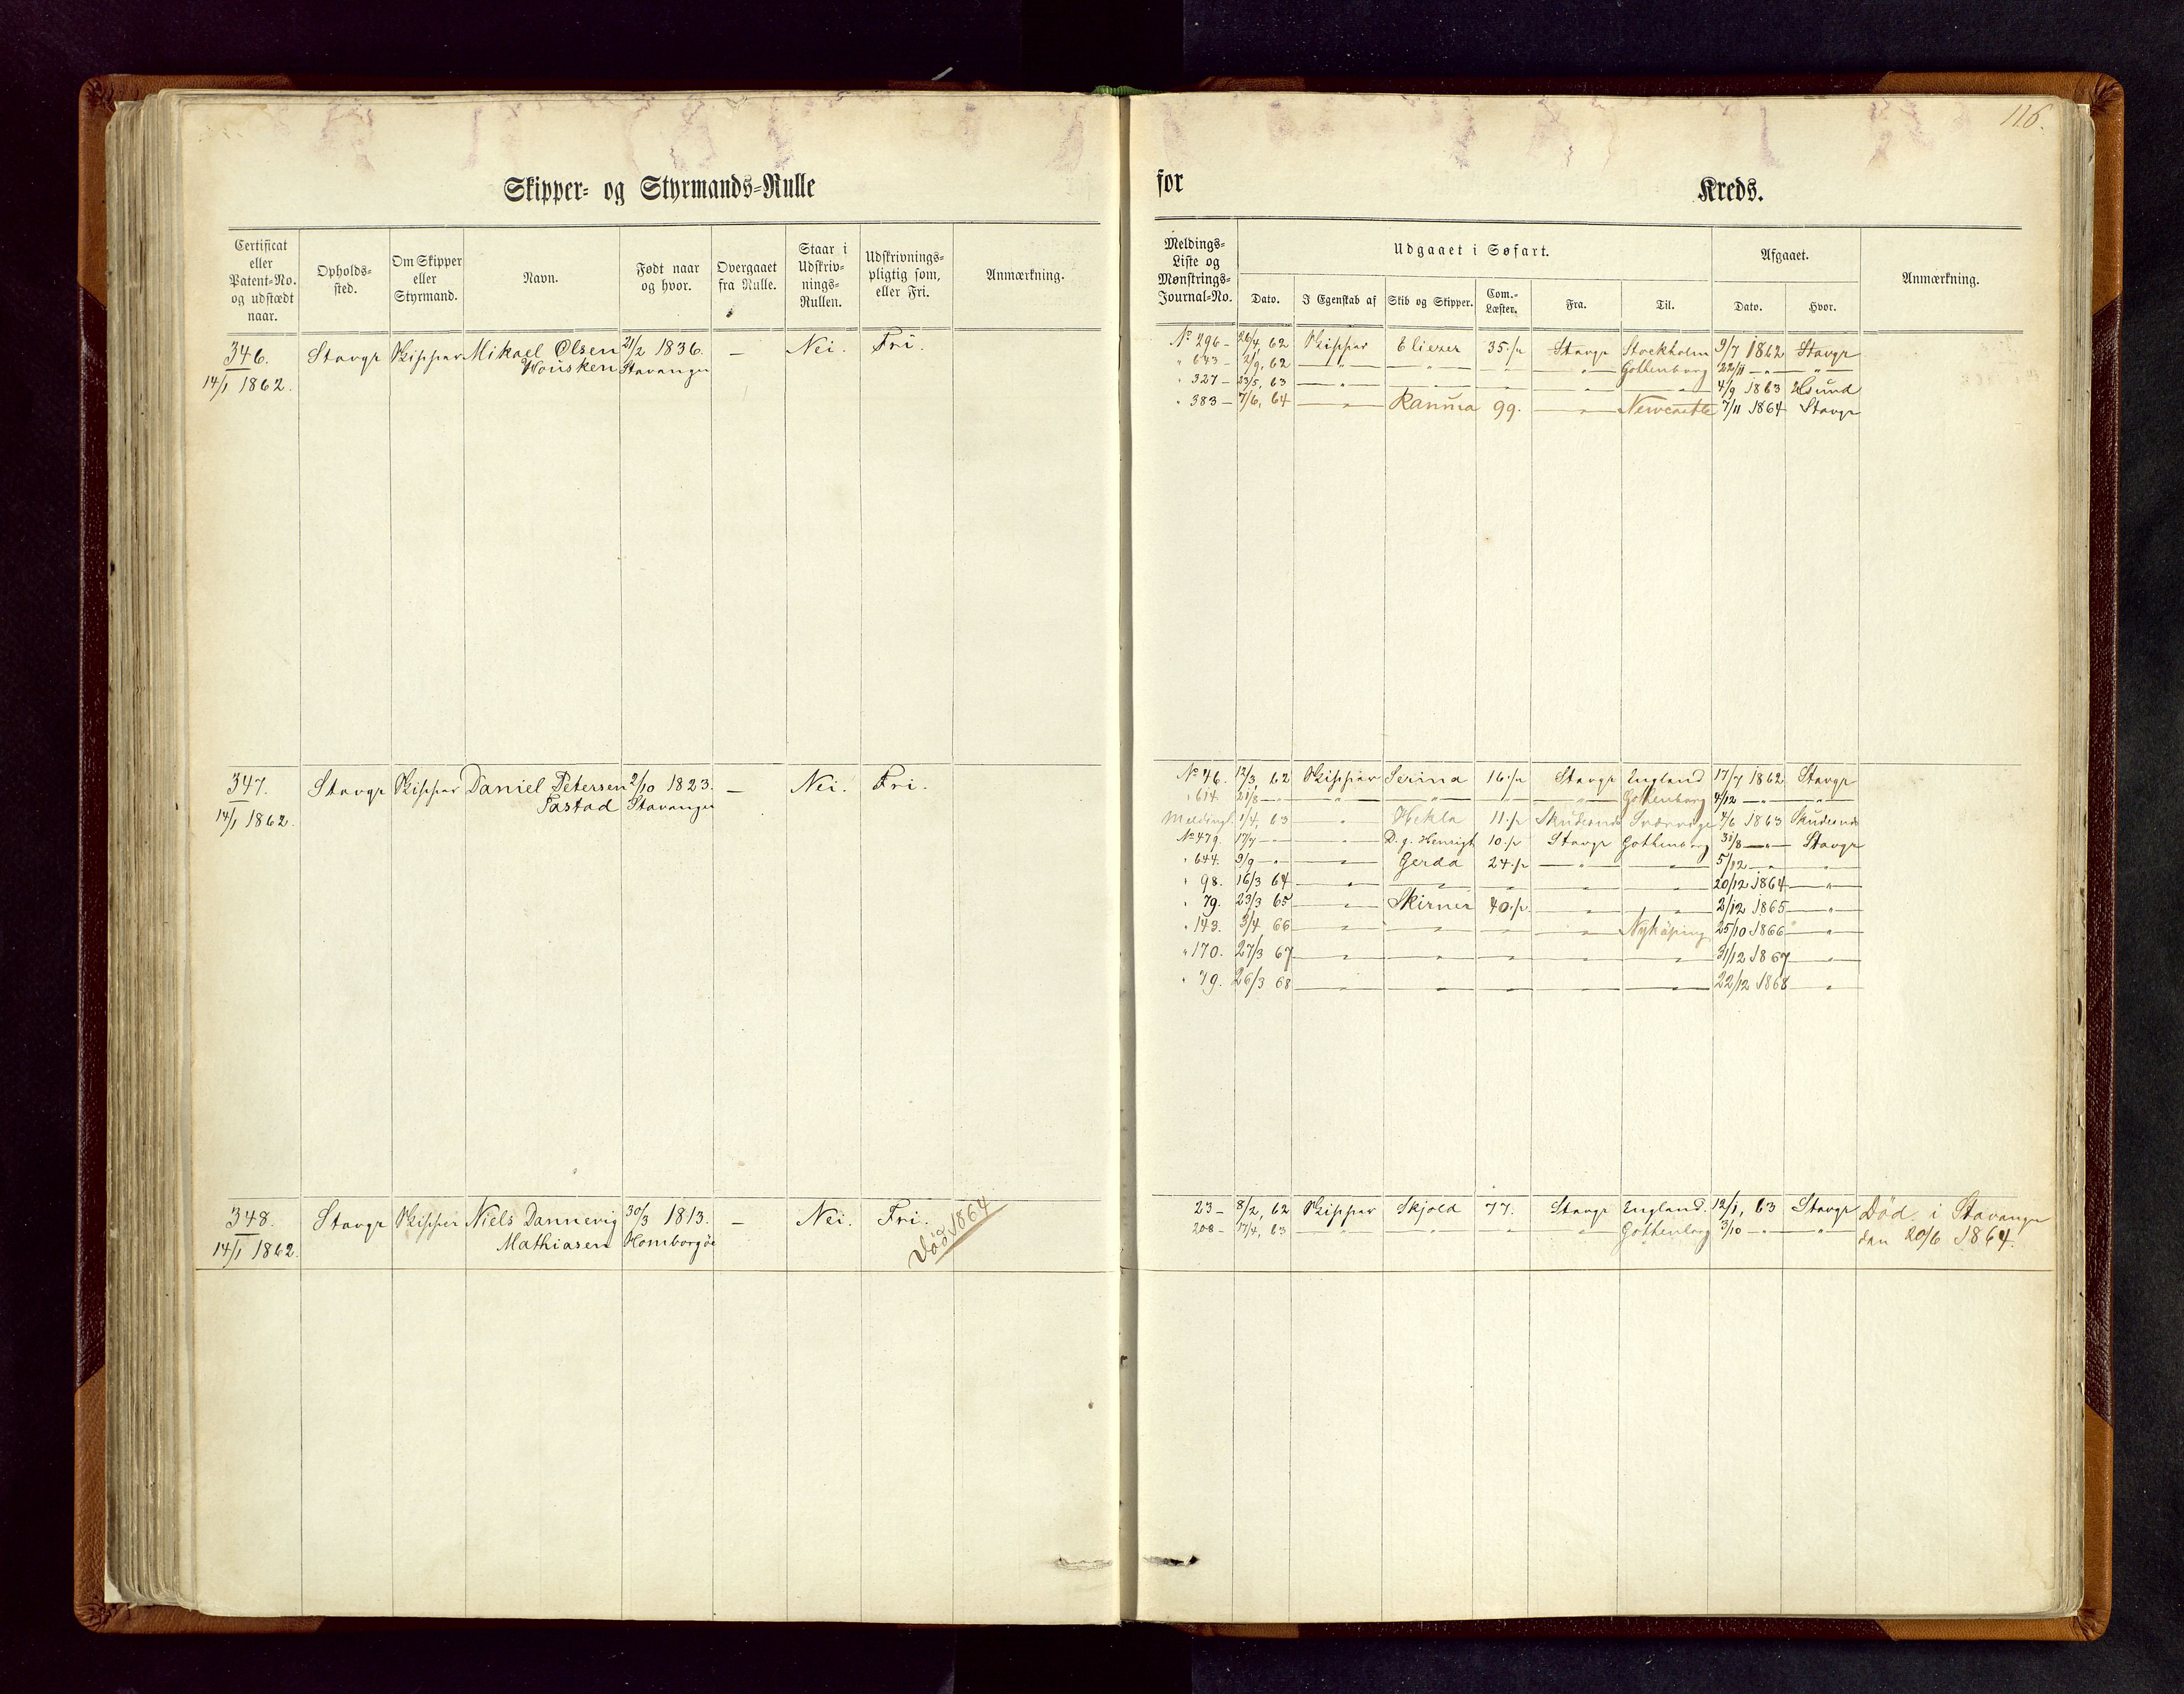 116.
Skipper- og Styrmands-Rulle
for Kreds.
Certificat eller Patent-No. og udstædt naar.
Opholds-sted.
Om Skipper eller Styrmand.
Navn.
Født naar og hvor.
Overgaaet fra Rulle.
Staar i Udskriv-nings-Rullen.
Udskrivnings-pligtig som, eller Fri.
Anmærkning.
Meldings-Liste og Mønstrings-Journal-No.
Udgaaet i Søfart.
Dato.
I Egenskab af
Skib og Skipper.
Com.-Læster.
Fra.
Til.
Afgaaet.
Dato.
Hvor.
Anmærkning.
346. Stavgr Skipper Mikael Olsen 21/2 1836. — Nei. Fri.
14/1 1862. Housken Stavanger
No 296 - 26/4, 62 Skipper Eliezer 35 Stavgr Stockholm 9/7 1862 Stavgr
" 643 - 2/9, 62 — " — — " — — " — — " — Gothenborg 22/11 — " — — " —
" 327 - 23/5, 63 — " — — " — — " — — " — — " — 4/9 1863 Hsund
" 383 - 7/6, 64 — " — Ranma 99. — " — Newcastle 7/11 1864 Stavgr
347. Stavgr Skipper Daniel Petersen 2/10 1823. — Nei. Fri.
14/1 1862. Tastad Stavanger
No 46. 12/3, 62 Skipper Serina 16 Stavgr England 17/7 1862 Stavgr
" 614. 21/8 — " — — " — — " — — " — — " — Gothenborg 4/12 — " — — " —
Meldingl. 1/4, 63 — " — Hekla 11 Skudesnes 7/6 1863 Skudesnes
No 479. 17/7 — " — — " — D. g. Hensigt 10 Stavgr Gothenborg 31/8 — " — Stavgr
" 644. 9/9 — " — — " — Gerda 24 — " — — " — 5/12 — " — — " —
" 98. 16/3 64 — " — — " — — " — — " — — " — 20/12 1864 — " —
" 79. 23/3 65 — " — Skirner 40 — " — — " — 2/12 1865 — " —
" 143. 3/4 66 — " — — " — — " — — " — Nykøping 25/10 1866 — " —
" 170. 27/3 67 — " — — " — — " — — " — — " — 31/12 1867 — " —
" 79. 26/3 68 — " — — " — — " — — " — — " — 22/12 1868 — " —
348. Stavgr Skipper Niels Dannevig 30/3 1813. — Nei. Fri.
14/1 1862. Mathiasen Homborgöe
Död 1864
23 - 8/2, 62 Skipper Skjold 77. Stavgr England. 12/1, 63 Stavgr Död i Stavanger
208 - 17/4, 63 — " — — " — — " — — " — Gothenborg 3/10 — " — — " — den 20/6 1864.